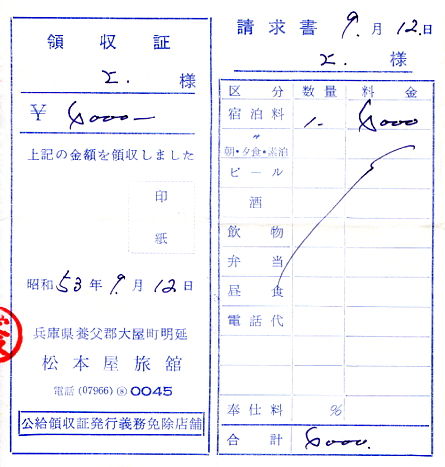 領収証
エ. 様
¥ 6000-
上記の金額を領収しました
印
紙
昭和53年9.月12日
兵庫県養父郡大屋町明延
松本屋旅舘
電話(07966)⑧0045
公給領収証発行義務免除店舗
請求書 9.月12.日
エ. 様
区分 数量 料金
宿泊料 1- 6000
〃
朝・夕食・素泊
ビール
酒
飲物
弁当
昼食
電話代
奉仕料 %
合計 6000.